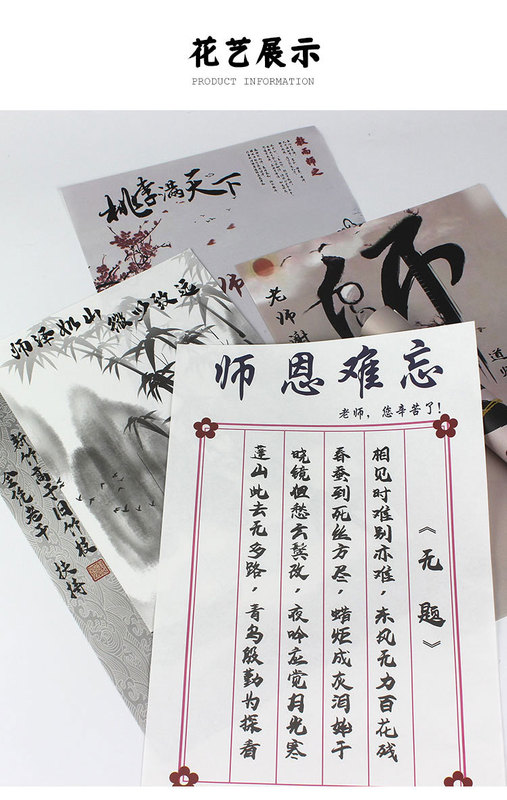 花艺展示
PRODUCT INFORMATION
桃李满天下
师
老师谢
师泽如山 微以致远
新竹高于旧竹枝
全凭老干
扶持
师恩难忘
老师，您辛苦了！
《无题》
相见时难别亦难，东风无力百花残
春蚕到死丝方尽，蜡炬成灰泪始干
晓镜但愁云鬓改，夜吟应觉月光寒
蓬山此去无多路，青鸟殷勤为探看